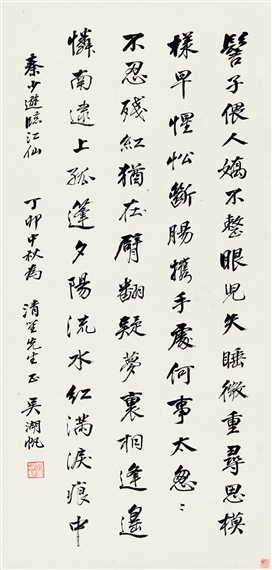 髻子偎人嬌不整眼兒失睡微重尋思模
樣早惺忪斷腸攜手處何事太怱〻
不忍殘紅猶在臂翻疑夢裏相逢遙
憐南逮上孤篷夕陽流水紅滿淚痕中
秦少遊臨江仙 丁卯中秋為 清先生正 吳湖帆